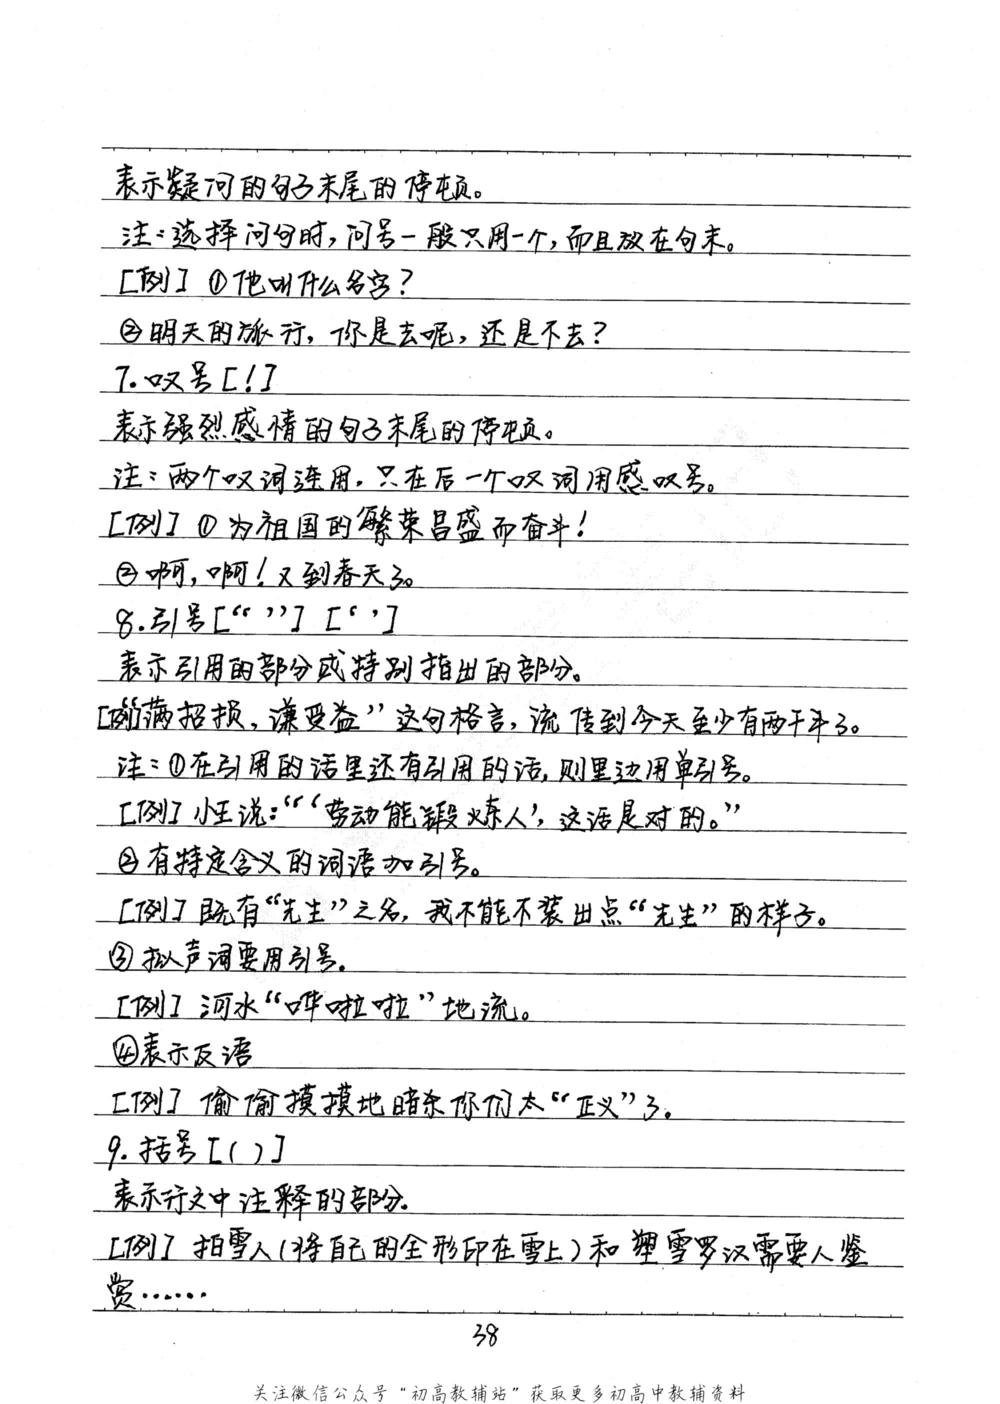 表示疑问的句子末尾的停顿。
注:选择问句时,问号一般只用一个,而且放在句末。
[例] ①他叫什么名字?
②明天的旅行,你是去呢,还是不去?
7.叹号[!]
表示强烈感情的句子末尾的停顿。
注:两个叹词连用,只在后一个叹词用感叹号。
[例] ①为祖国的繁荣昌盛而奋斗!
②啊,啊!又到春天了。
8.引号[“ ”] [‘ ’]
表示引用的部分或特别指出的部分。
[例]“满招损,谦受益”这句格言,流传到今天至少有两千年了。
注:①在引用的话里还有引用的话,则里边用单引号。
[例] 小王说:“‘劳动能锻炼人’,这话是对的。”
②有特定含义的词语加引号。
[例] 既有“先生”之名,我不能不装出点“先生”的样子。
③拟声词要用引号。
[例] 河水“哗啦啦”地流。
④表示反语
[例] 偷偷摸摸地暗杀你们太“正义”了。
9.括号[( )]
表示行文中注释的部分。
[例] 拍雪人(将自己的全形印在雪上)和塑雪罗汉需要人鉴
赏……
38
关注微信公众号“初高教辅站”获取更多初高中教辅资料